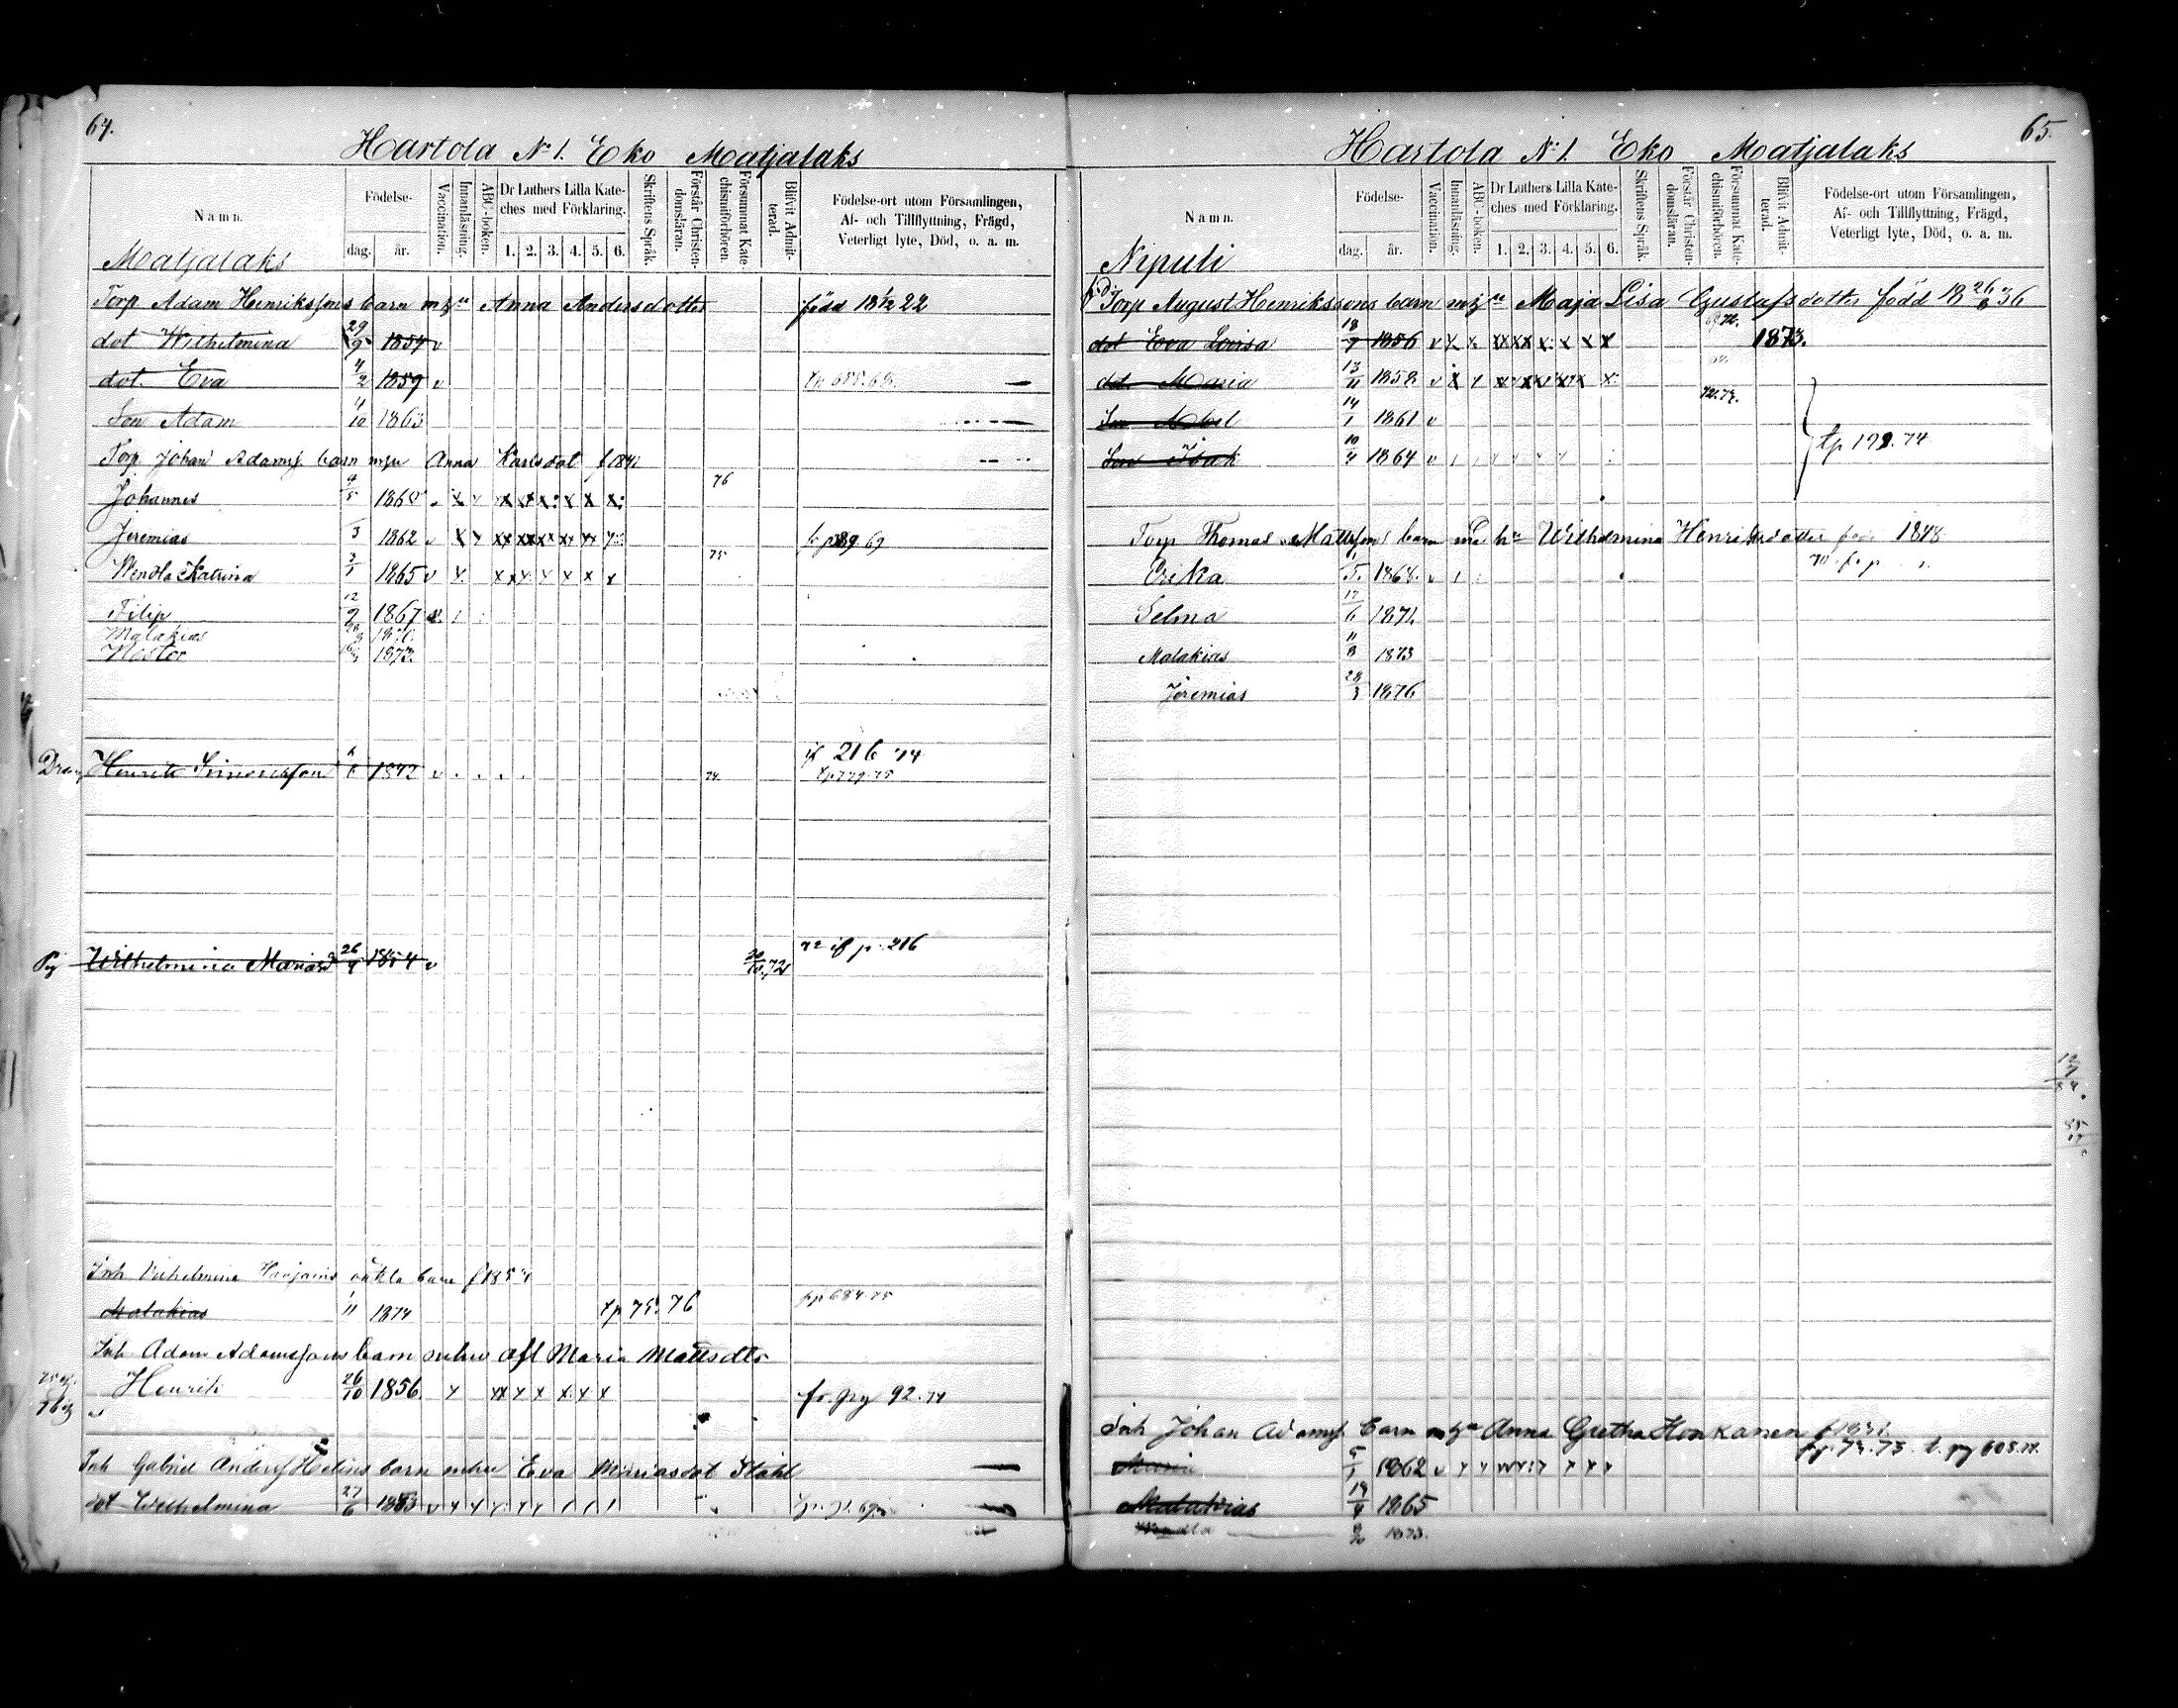 64.
Hartola No 1. Eko Matjalaks
Namn. Födelse- dag. år. Vaccination. Innanläsning. ABC-boken. Dr Luthers Lilla Kateches med Förklaring. 1. 2. 3. 4. 5. 6. Skriftens Språk. Förstår Christendomsläran. Försummat Katechismiförhören. Blifvit Admitterad. Födelse-ort utom Församlingen, Af- och Tillflyttning, Frägd, Veterligt lyte, Död, o. a. m.
Matjalaks
Torp Adam Henrikssons barn m hu Anna Andersdotter född 18 1/12 22
dot Wilhelmina 29/9 1854 v
dot. Eva 4/2 1859 v
Son Adam 4/10 1863
Torp Johan Adamss. barn m hu Anna Karlsdot f 184
Johannes 4/5 1860 76
Jeremias 3 1862 v 69
Wendla Katrina 3/1 1865 v 75
Filip 12/9 1867
Malakias 1870.
Nestor 1873.
Dreng Henrik Simonsson 6 1842 v 74. if 216 74
tp 729.75
Pig Wilhelmina Mariasd 26/4 1854 v 72 72 if p. 216
Inh Vilhelmina Harjains oäkta barn f 185
Malakias 1/11 1874 tp 75. 76 fr p 684.75
Inh Adam Adamssons barn m hu afl Maria Mattsdtr
Henrik 26/10 1856. x xx x x x x x fr. pg 92.74
Inh Gabriel Anderss Helins barn m hu Eva Mariasdot Ståhl
dot Wilhelmina 27/6 1853 v
65.
Hartola No 1. Eko Matjalaks
Namn. Födelse- dag. år. Vaccination. Innanläsning. ABC-boken. Dr Luthers Lilla Kateches med Förklaring. 1. 2. 3. 4. 5. 6. Skriftens Språk. Förstår Christendomsläran. Försummat Katechismiförhören. Blifvit Admitterad. Födelse-ort utom Församlingen, Af- och Tillflyttning, Frägd, Veterligt lyte, Död, o. a. m.
Nipuli
Torp August Henrikssons barn m hu Maja Lisa Gustafsdotter född 18 26/8 36
dot Eva Lovisa 18/7 1856 v x x xx xx x x x x 1873.
dot Maria 13/11 1858 v x x
Son Abel 14/1 1861 v 72.73.
Son Isak 10/4 1864 v tp 192.74
Torp Thomas Mattssons barn med hu Wilhelmina Henriksdotter född 1848
Erika 5. 1868. v
Selma 17/6 1871.
Malakias 11/8 1873
Jeremias 28/3 1876
Inh Johan Adamss. barn m hu Anna Gretha Honkanen
Maria 5/1 1862 v fr p. 73.73. t. pg 608.
Malakias 19/4 1865
Wendla 1873.